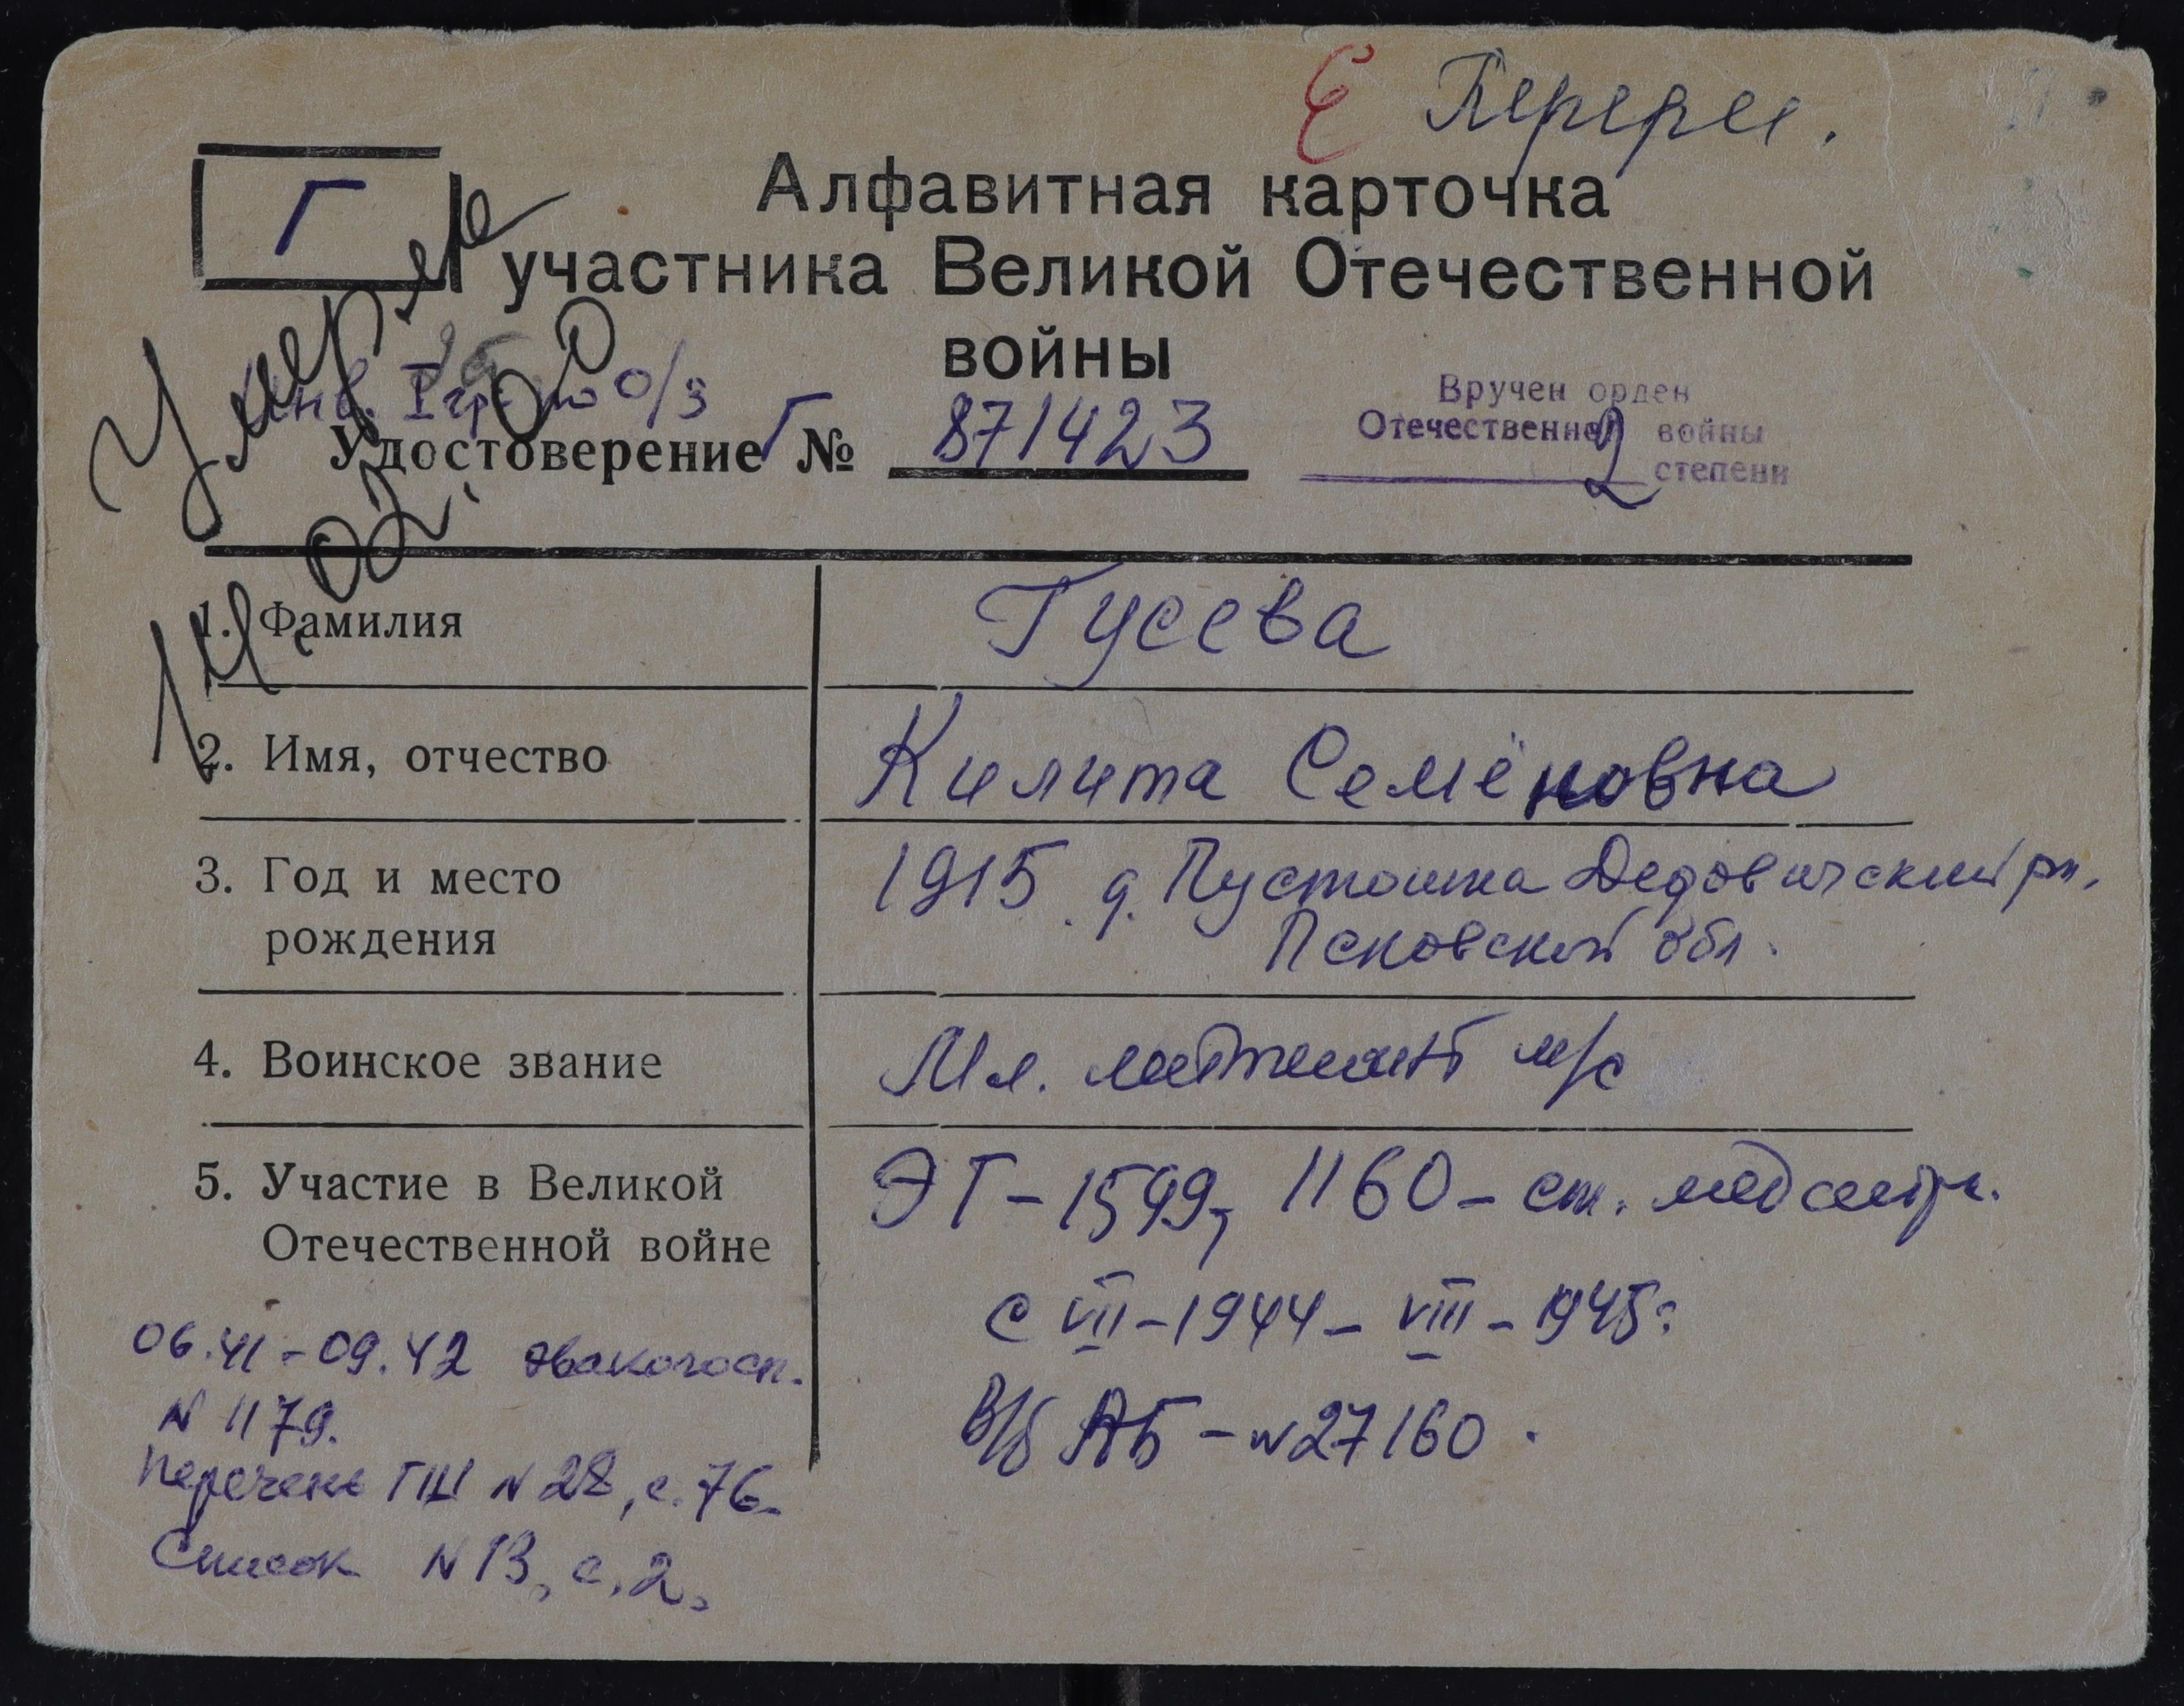 Е Перерег.
Г
Алфавитная карточка
участника Великой Отечественной
войны
Умерла
14.02.00
Инв. I гр. по О/З
Вручен орден
Отечественной войны
2 степени
Удостоверение Г № 871423
1. Фамилия Гусева
2. Имя, отчество Килита Семёновна
3. Год и место 1915 д. Пустошка Дедовичский рн.
рождения Псковской обл.
4. Воинское звание Мл. лейтенант м/с
5. Участие в Великой ЭГ-1599, 1160 - ст. медсестра.
Отечественной войне
с VII-1944 - VIII-1945г
В/б АБ - N 27160.
06.41-09.42 эвакогосп.
N 1179.
Перечень ГШ N 28, с. 76.
Список N 13, с. 2.